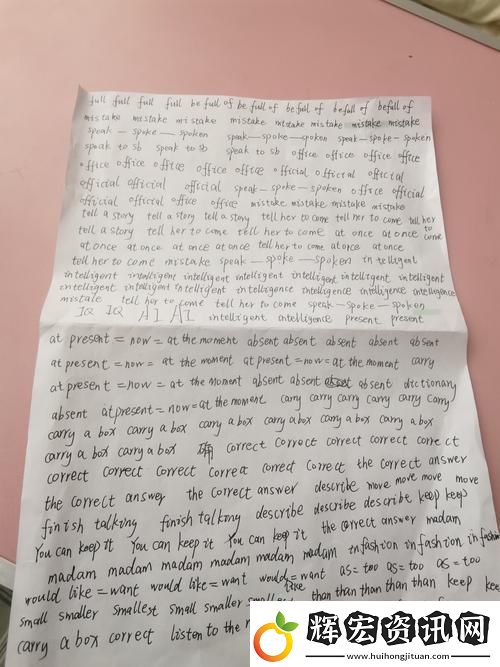 full full full full be full of be full of be full of be full of befull of
mistake mistake mistake mistake mistake mistake mistake mistake
speak — spoke — spoken speak — spoke — spoken speak — spoke — spoken
speak to sb speak to sb speak to sb office office office office
office office office office office office official official official
official official official speak — spoke — spoken office official
official official office office mistake mistake mistake mistake
tell a story tell a story tell a story tell her to come tell her to come tell her
tell a story tell her to come tell her to come at once at once to come
at once at once at once at once tell her to come at once at once
tell her to come mistake speak — spoke — spoken intelligent
intelligent intelligent intelligent intelligent intelligent intelligent intelligent
intelligent intelligent intelligent intelligence intelligence intelligence intelligence
mistake tell her to come tell her to come speak — spoke — spoken
IQ IQ AI AI intelligent intelligence present present
at present = now = at the moment absent absent absent absent absent
at present = now = at the moment at present = now = at the moment carry
at present = now = at the moment absent absent absent dictionary
absent at present = now = at the moment carry carry carry carry carry carry
carry a box carry a box carry a box carry a box carry a box carry a box
carry a box carry a box 确 correct correct correct correct correct
correct correct correct correct correct correct the correct answer
the correct answer the correct answer describe move move move move
finish talking finish talking describe describe describe keep keep
You can keep it You can keep it You can keep it the correct answer madam
madam madam madam madam madam madam in fashion in fashion in fashion
would like = want would like = want would like = want as = too as = too as = too
small smaller smallest small smaller than than than than than keep
carry a box correct listen to the
辉宏资讯网
www.huihongjituan.com